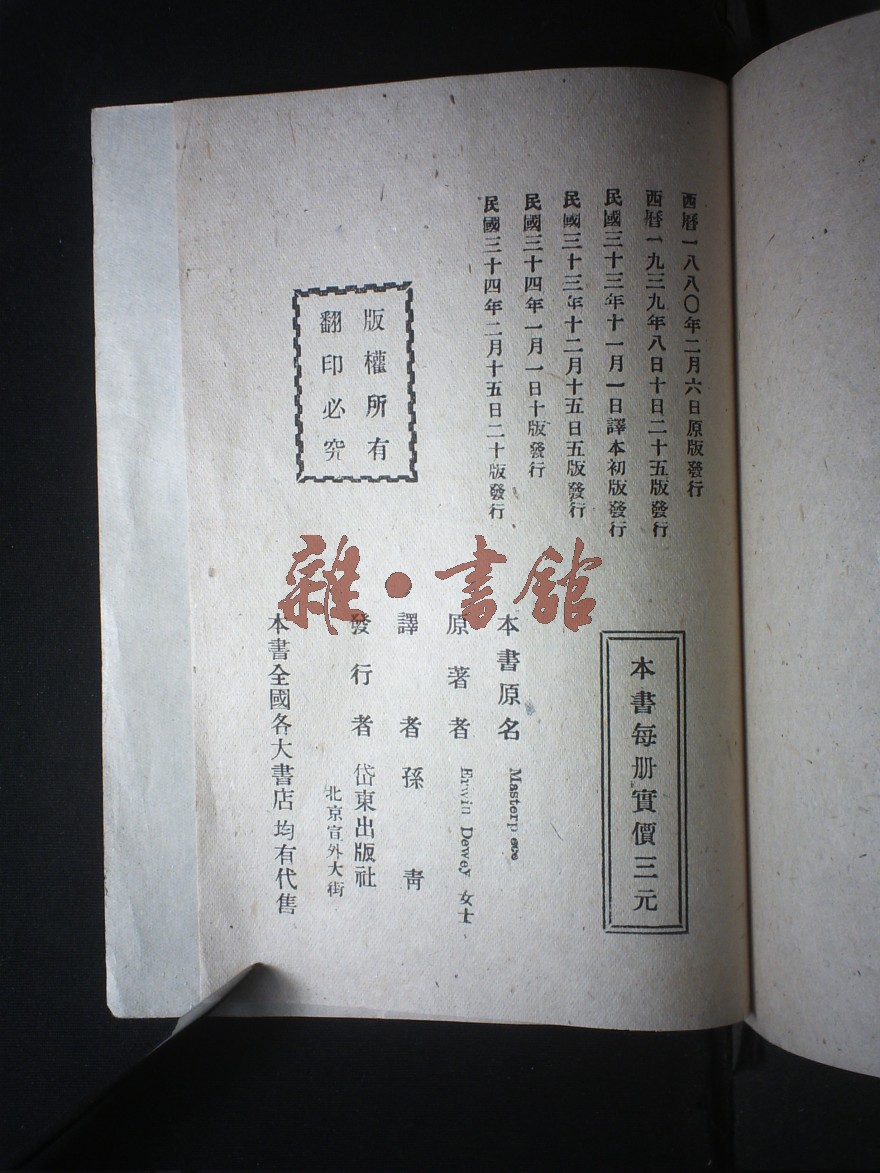 西曆一八八〇年二月六日原版發行
西曆一九三九年八日十日二十五版發行
民國三十三年十一月一日譯本初版發行
民國三十三年十二月十五日五版發行
民國三十四年一月一日十版發行
民國三十四年二月十五日二十版發行
版權所有
翻印必究
雜·書館
本書每册實價三元
本書原名 Masterpiece
原著者 Erwin Dewey 女士
譯者 孫靑
發行者 岱東出版社
北京宣外大街
本書全國各大書店均有代售